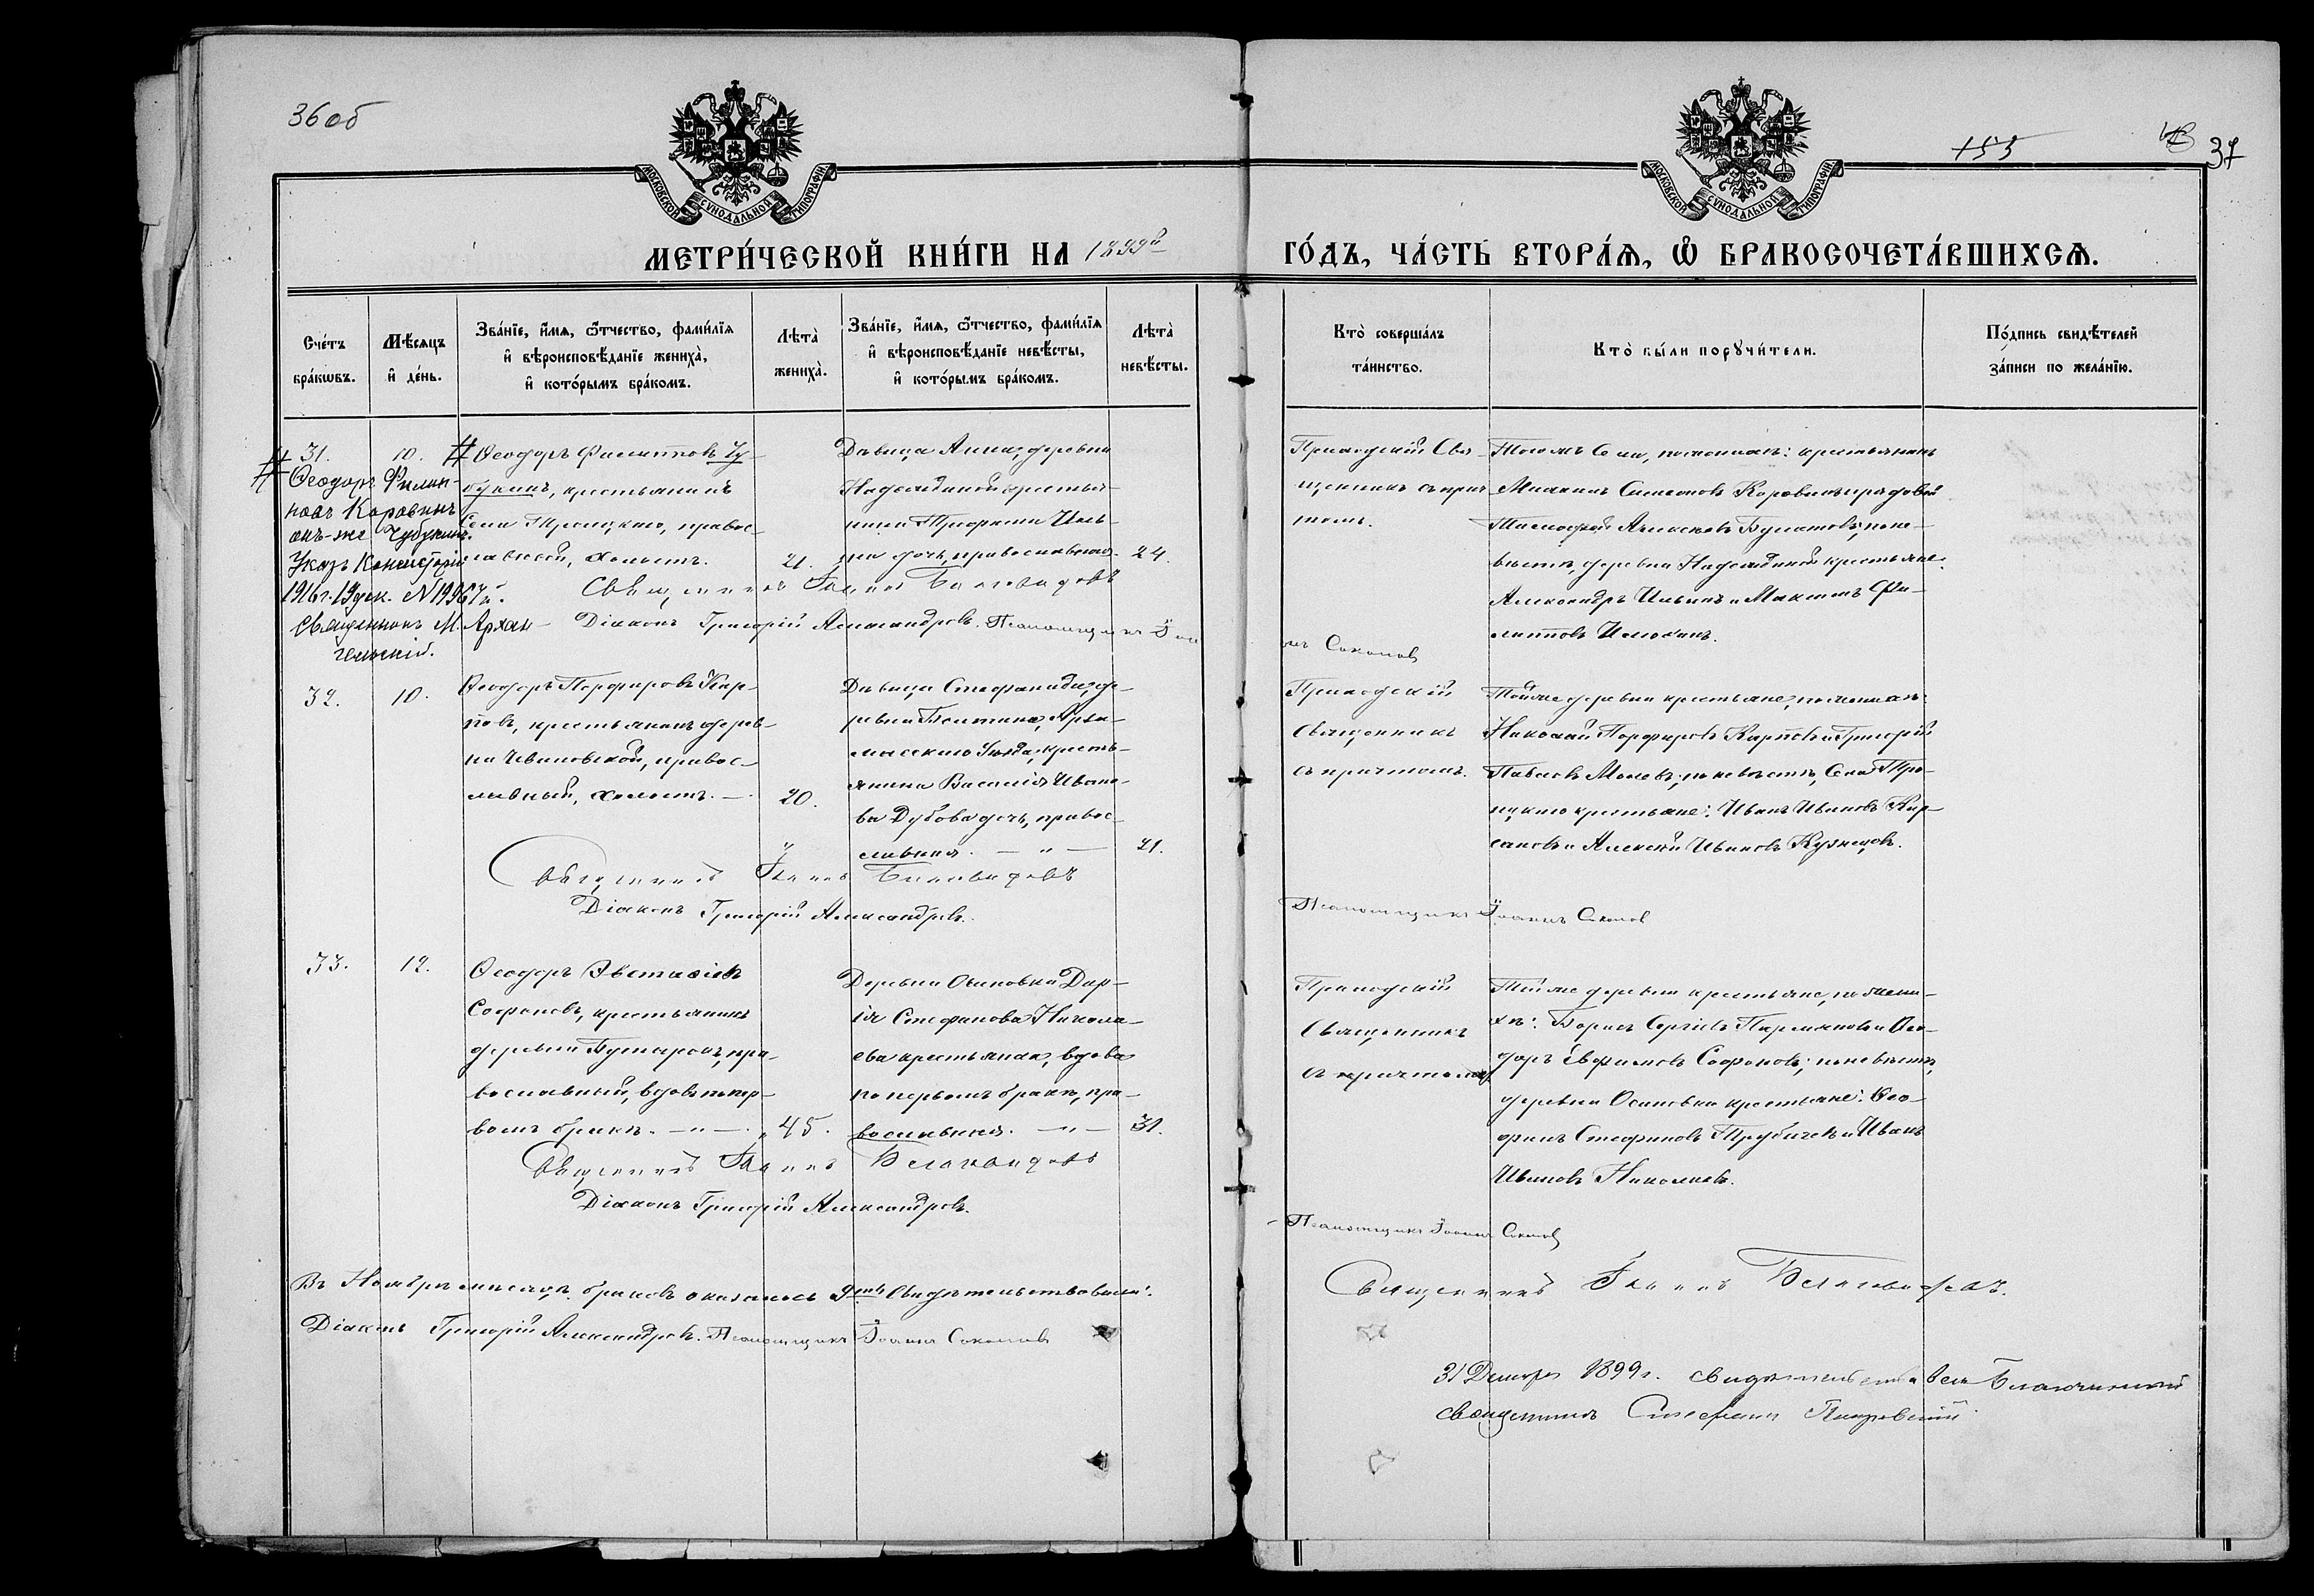 36 об
155
37
МОСКОВСКОЙ СѴНОДАЛЬНОЙ ТИПОГРАФІИ
МОСКОВСКОЙ СѴНОДАЛЬНОЙ ТИПОГРАФІИ
МЕТРИ́ЧЕСКОЙ КНИ́ГИ НА 1899й ГО́ДЪ, ЧА́СТЬ ВТОРА́Я, Ѡ БРАКОСОЧЕТА́ВШИХСЯ.
Сче́тъ бра́кωвъ.
Мѣ́сяцъ и де́нь.
Зва́нїе, и҆́мя, ѻ҆́тчество, фами́лїя
и вѣроисповѣ́данїе жениха̀,
и кото́рымъ бра́комъ.
Лѣта̀ жениха̀.
Зва́нїе, и҆́мя, ѻ҆́тчество, фами́лїя
и вѣроисповѣ́данїе невѣ́сты,
и кото́рымъ бра́комъ.
Лѣта̀ невѣ́сты.
Кто̀ соверша́лъ та́инство.
Кто̀ бы́ли порꙋчи́тели.
По́дпись свидѣ́телей за́писи по жела́нїю.
31.
10.
# Ѳеодоръ Филип-
повъ Коровинъ
онъ-же Чубукинъ.
Указъ Консисторіи
1916 г. 19 дек. № 19967й.
Священникъ М. Архан-
гельскій.
# Ѳеодоръ Филипповъ Чу-
букинъ, крестьянинъ
Села Троицкаго, правос-
лавный, холостъ.
21.
Дѣвица Анна, деревни
Надеждиной крестья-
нина Трофима Иль-
ина дочь, православная.
24.
Приходскій Свя-
щенникъ съ прич
томъ.
Тогожъ Села, по женихѣ: крестьянинъ
Михаилъ Симеоновъ Коровинъ и рядовой
Тимофей Алексѣевъ Булатовъ; по не-
вѣстѣ, деревни Надеждиной крестьяне:
Александръ Ильинъ и Максимъ Фи-
липповъ Илюхинъ.
Священникъ Іоаннъ Бѣловидовъ
Діаконъ Григорій Александровъ. Псаломщикъ Іоан
нъ Соколовъ
32.
10.
Ѳеодоръ Порфировъ Кар-
повъ, крестьянинъ дерев-
ни Ивановской, правос-
лавный, холостъ. —
20.
Дѣвица Стефанида, де-
ревни Болтина, Арза-
масскаго Уѣзда, кресть-
янина Василія Ивано-
ва Дубова дочь, правос-
лавная. — " —
21.
Приходскій
Священникъ
съ причтомъ.
Тойже деревни крестьяне, по женихѣ:
Николай Порфировъ Карповъ и Григорій
Павловъ Молевъ; по невѣстѣ, Села Тро-
ицкаго крестьяне: Иванъ Ивановъ Кир-
сановъ и Алексѣй Ивановъ Кузнецовъ.
Священникъ Іоаннъ Бѣловидовъ
Діаконъ Григорій Александровъ.
Псаломщикъ Іоаннъ Соколовъ
33.
12.
Ѳеодоръ Евстафіевъ
Софоновъ, крестьянинъ
деревни Бутырокъ, пра-
вославный, вдовъ по пер-
вомъ бракѣ. — " —
45.
Деревни Осиновки Дар-
ія Стефанова Никола-
ева крестьянка, вдова
по первомъ бракѣ, пра-
вославная. — " —
31.
Приходскій
Священникъ
съ причтомъ
Тойже деревни крестьяне, по жени-
хѣ: Борисъ Сергіевъ Пармёновъ и Ѳео-
доръ Евфимовъ Софоновъ; по невѣстѣ,
деревни Осиновки крестьяне: Ѳео-
филъ Стефановъ Трубичевъ и Иванъ
Ивановъ Николаевъ.
Священникъ Іоаннъ Бѣловидовъ
Діаконъ Григорій Александровъ.
Псаломщикъ Іоаннъ Соколовъ
Въ Ноябрѣ мѣсяцѣ браковъ оказалось 9ть. Свидѣтельствовали:
Священникъ Іоаннъ Бѣловидовъ.
Діаконъ Григорій Александровъ. Псаломщикъ Іоаннъ Соколовъ
31 Декабря 1899 г. свидѣтельствовалъ Благочинный
священникъ Покровскій